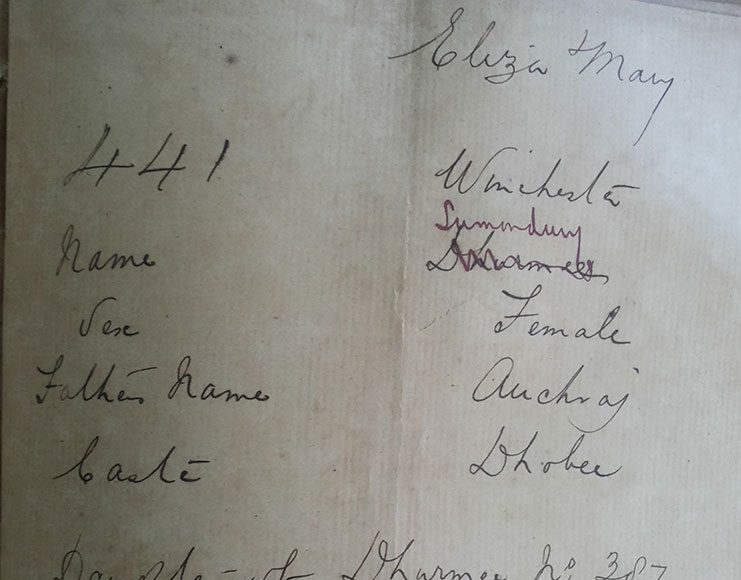 Eliza Mary
441 Winchester
Sumondury
Name Dharmee
Sex Female
Father's Name Auchraj
Caste Dhobee
Daughter of Dharmee No 387